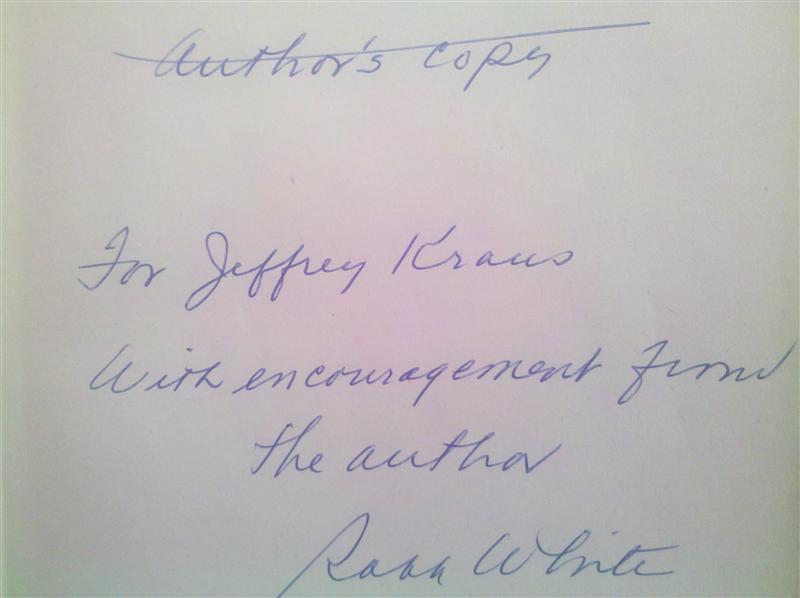 Author's copy
For Jeffrey Kraus
With encouragement from
the author
Robb White